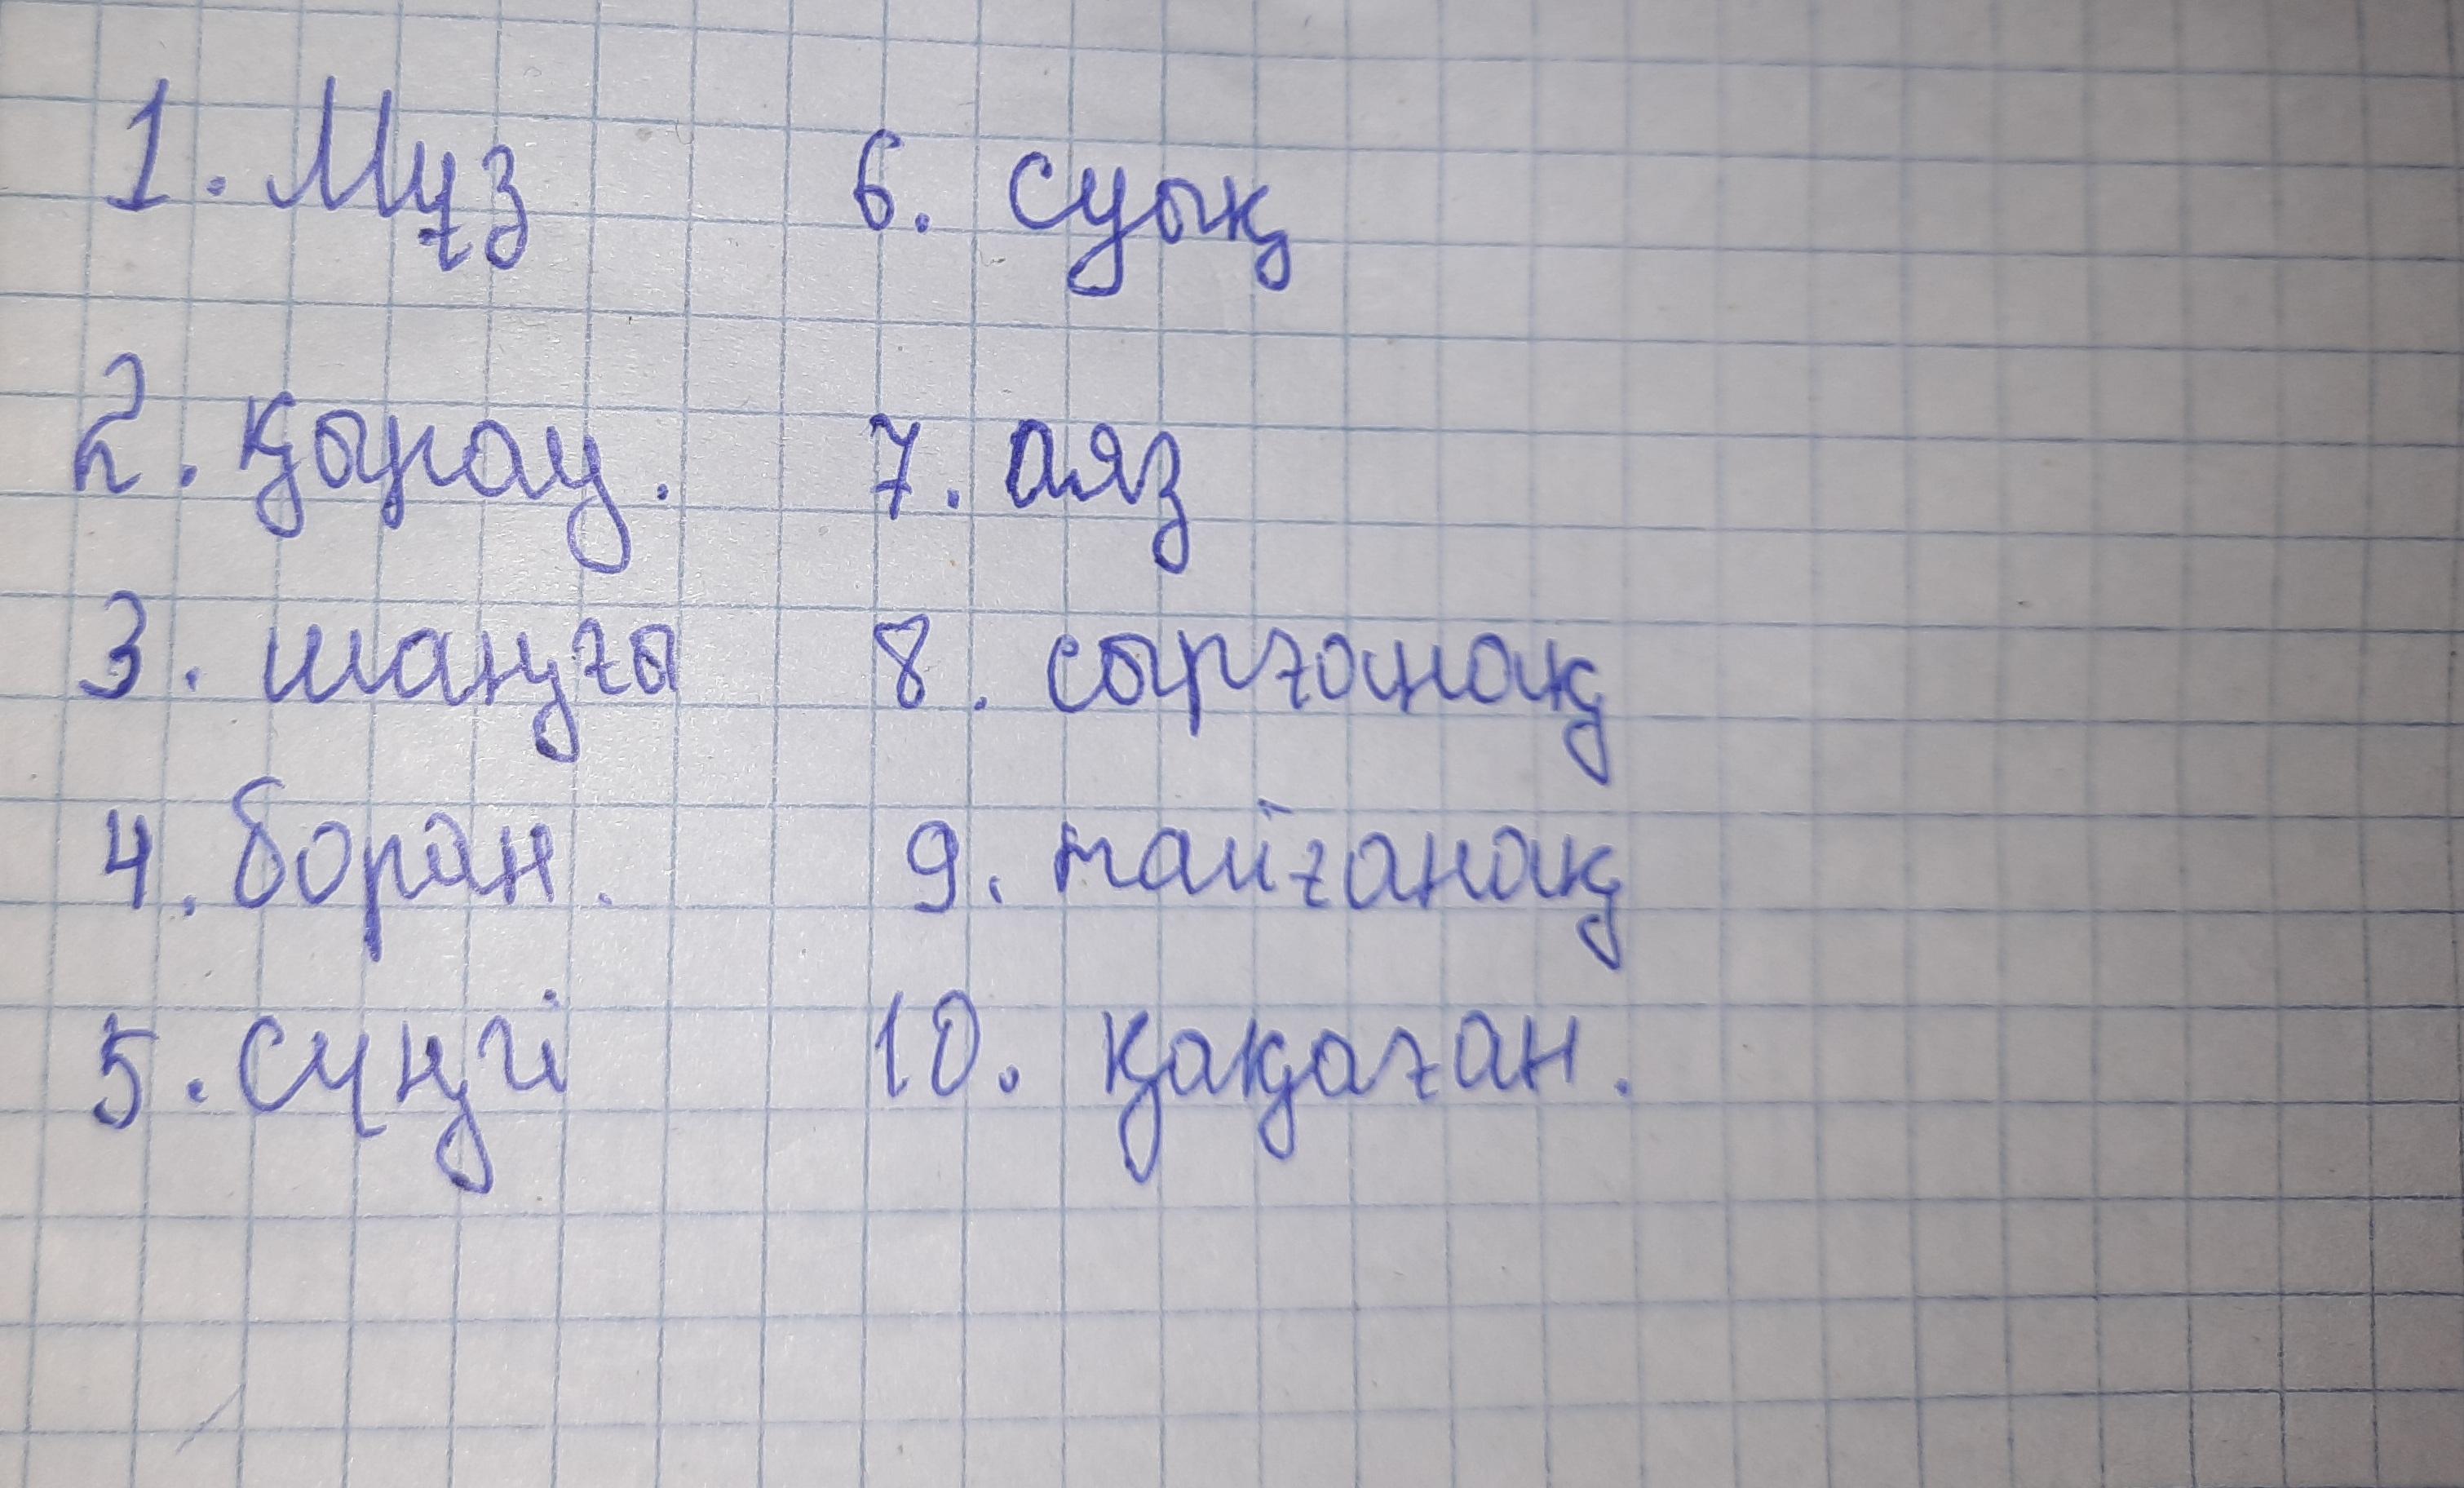 1. Мұз
2. қырау.
3. шаңғы
4. боран.
5. сүңгі
6. суық
7. аяз
8. сырғанақ
9. тайғанақ
10. қақаған.